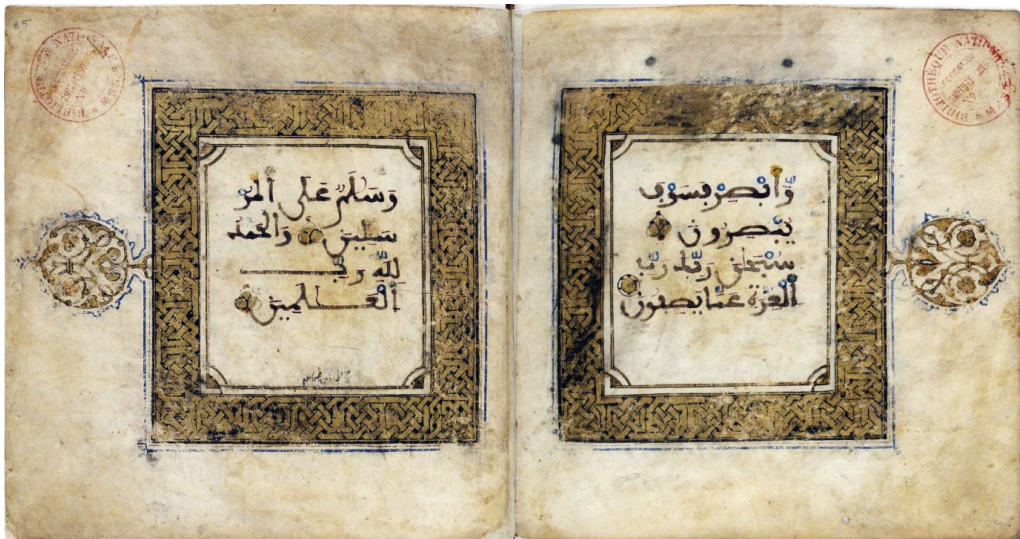 وَأَبْصِرْ فَسَوْفَ
يُبْصِرُونَ
سُبْحَٰنَ رَبِّكَ رَبِّ
اَ۬لْعِزَّةِ عَمَّا يَصِفُونَ
وَسَلَٰمٌ عَلَى اَ۬لْمُرْ
سَلِينَ وَالْحَمْدُ
لِلهِ رَبِّ
اِ۬لْعَٰلَمِينَ
BIBLIOTHÈQUE NATIONALE
BIBLIOTHÈQUE NATIONALE